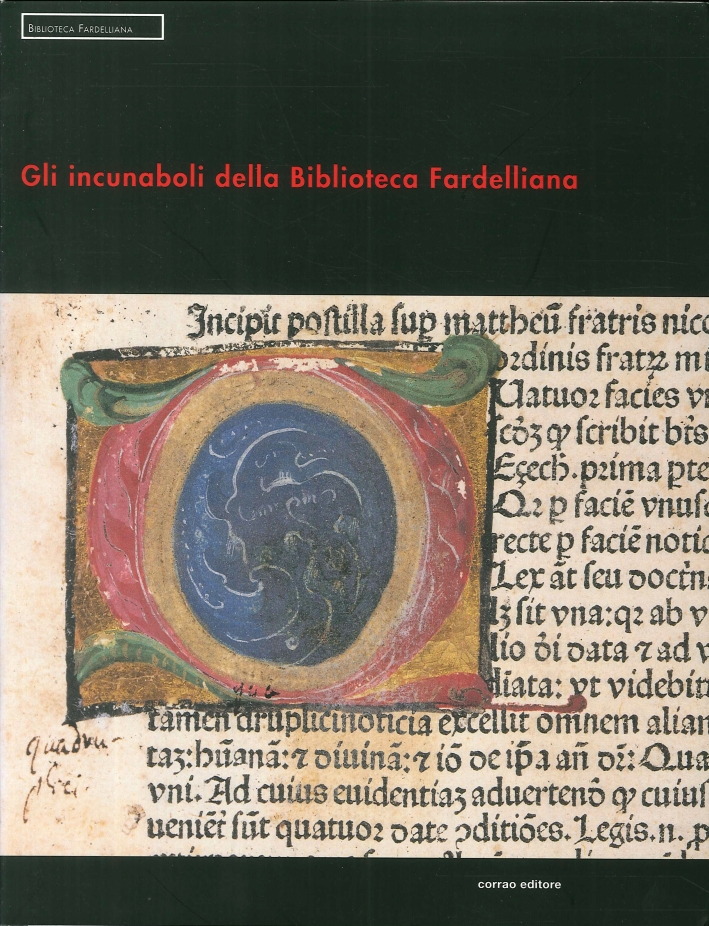 BIBLIOTECA FARDELLIANA
Gli incunaboli della Biblioteca Fardelliana
Incipit postilla sup mattheū fratris nico
ordinis fratrꝝ mi
Uatuor facies vn
scōꝫ ꝙ scribit br̄s
Eçech̄. prima ꝑte
Qꝛ ꝑ faciē vnusq
recte ꝑ faciē notic
Lex āt seu doctn̄
lꝫ sit vna:qꝛ ab v
lio ōi data ⁊ ad v
diata: vt videbim
gia
tamen druplicinoticia excellit omnem alian
quadru-
plici
taꝫ:hūanā:⁊ diuinā:⁊ iō de ip̄a an̄ dr̄: Qua
vni. Ad cuius euidentiaꝫ aduertenō ꝙ cuiuſ
ueniēt̄ sūt quatuor date ꝯditiōes. Legis. n. p
corrao editore